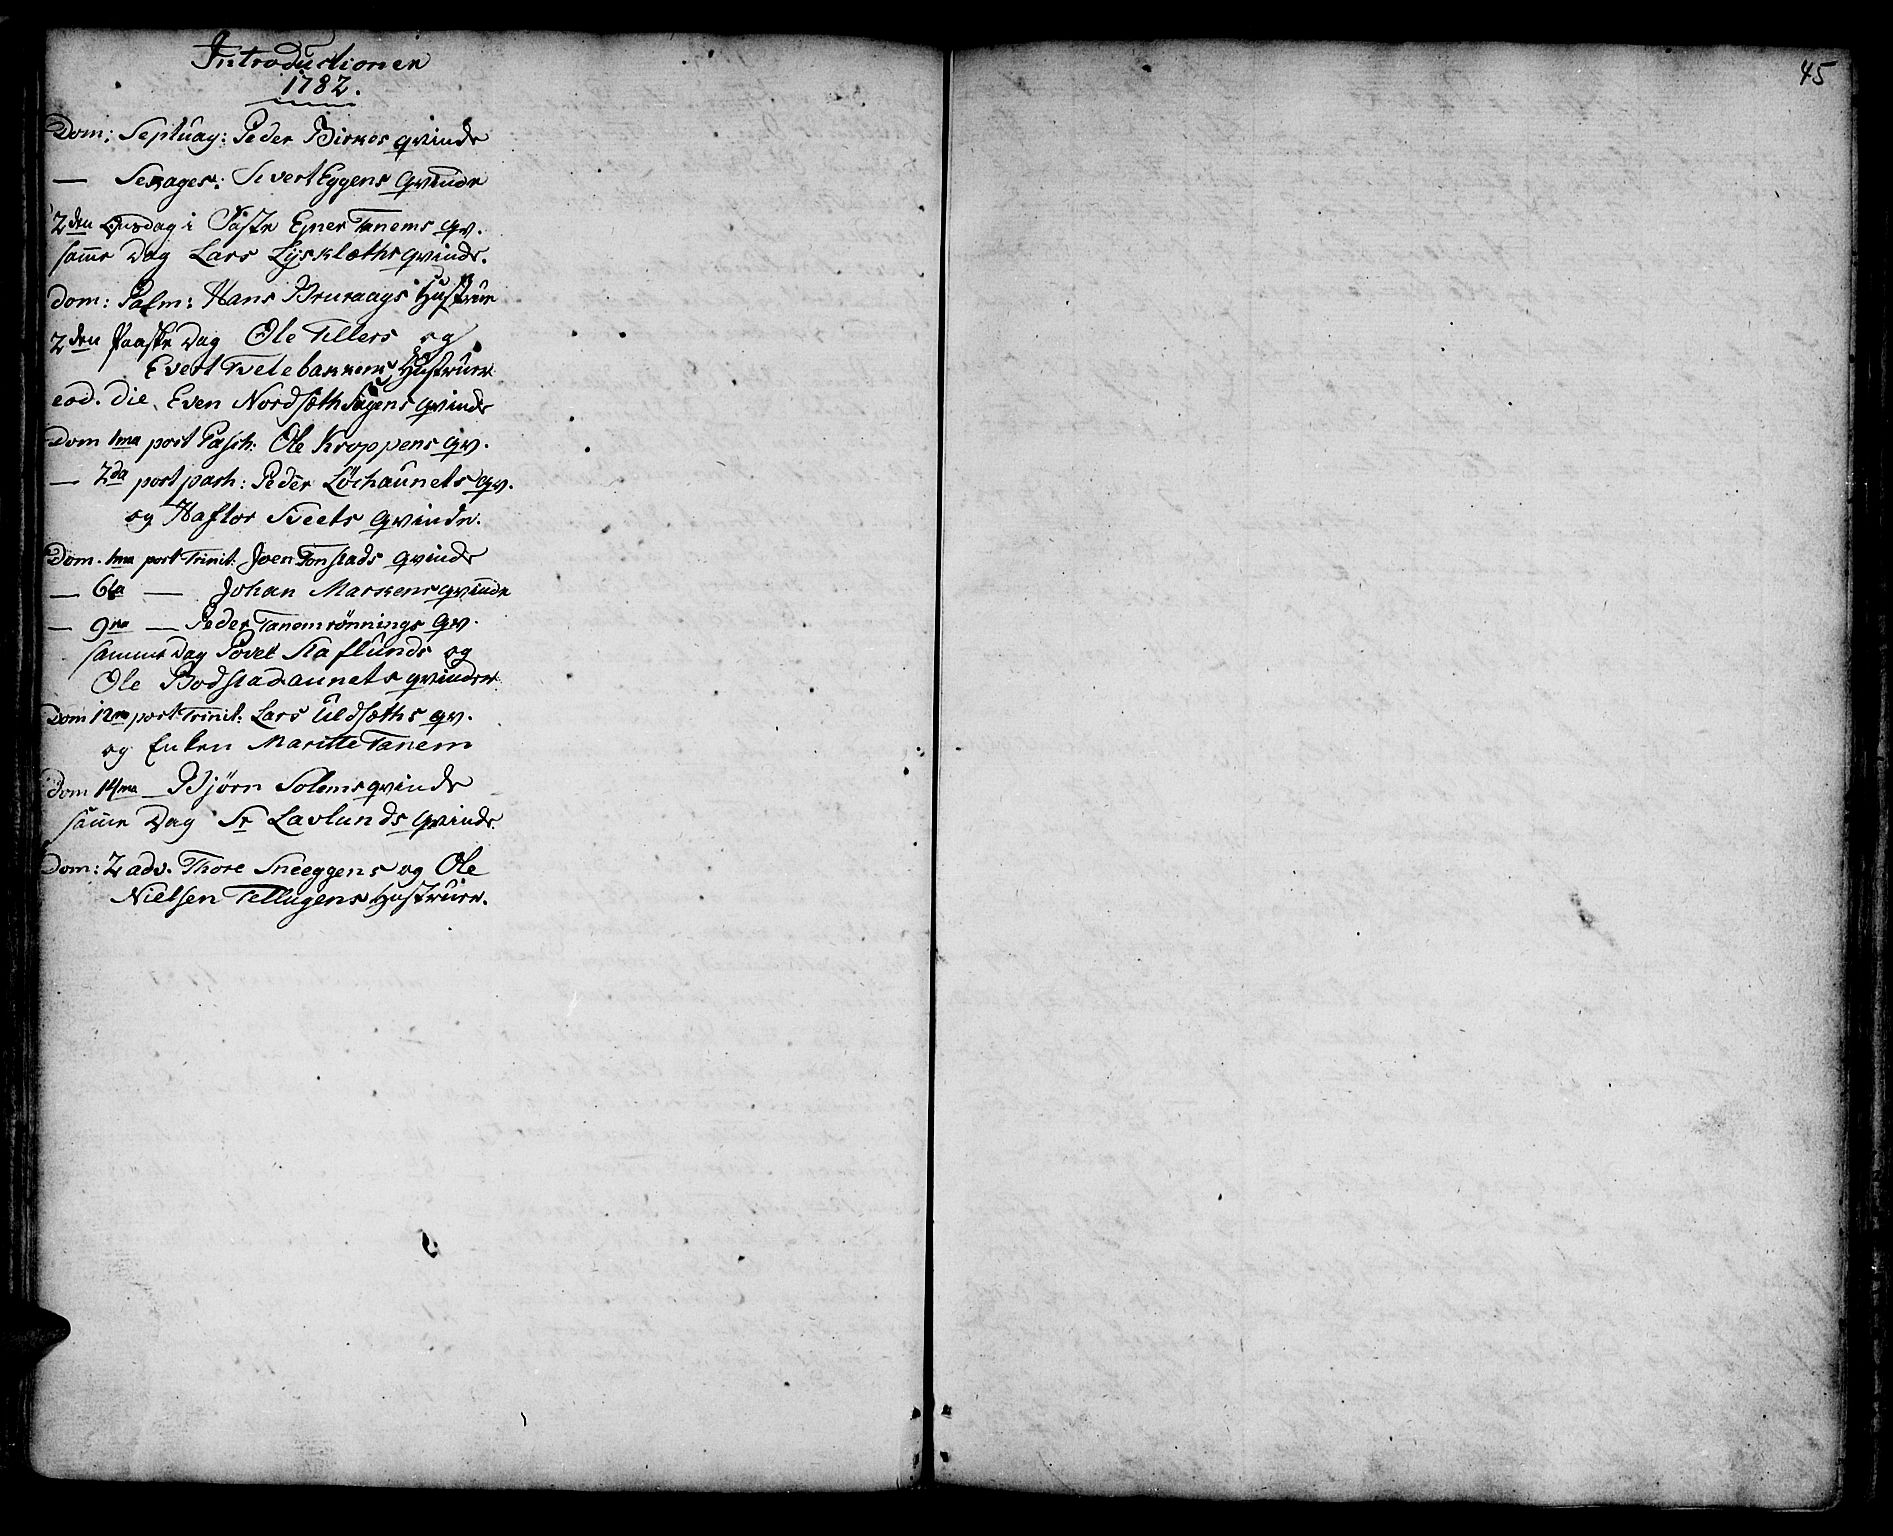 Introductioner
1782.
Dom: Septuag: Peder Birkes qvinde
— Sexages: Sivert Eggens qvinde
2den Onsdag i Faste Ejner Tanems qv.
samme Dag Lars Lysklæths qvinde.
Dom: Palm: Hans Bruraags Hustrue
2den Paaske Dag Ole Tillers og
Evert Tvetebakkens Hustruer
eod. die Even Nordsæth Hagens qvinde
Dom 1ma post Pasch: Ole Kroppens qv.
— 2da post pash: Peder Løchaunets qv.
og Haftor Sveets qvinde.
Dom. 1ma post Trinit: Joen Tonstads qvinde
— 6ta — Johan Markens qvinde
— 9na — Peder Tanemrönnings qv.
samme Dag Povel Staflunds og
Ole Bodstadaunets qvinder
Dom 12ma post Trinit: Lars Uldsæths qv.
og Enken Maritte Tanem
Dom 14ma — Bjørn Solems qvinde
samme Dag Sr Lavlunds qvinde.
Dom: 2 adv. Thore Sneeggens og Ole
Nielsen Tellugens Hustruer.
45